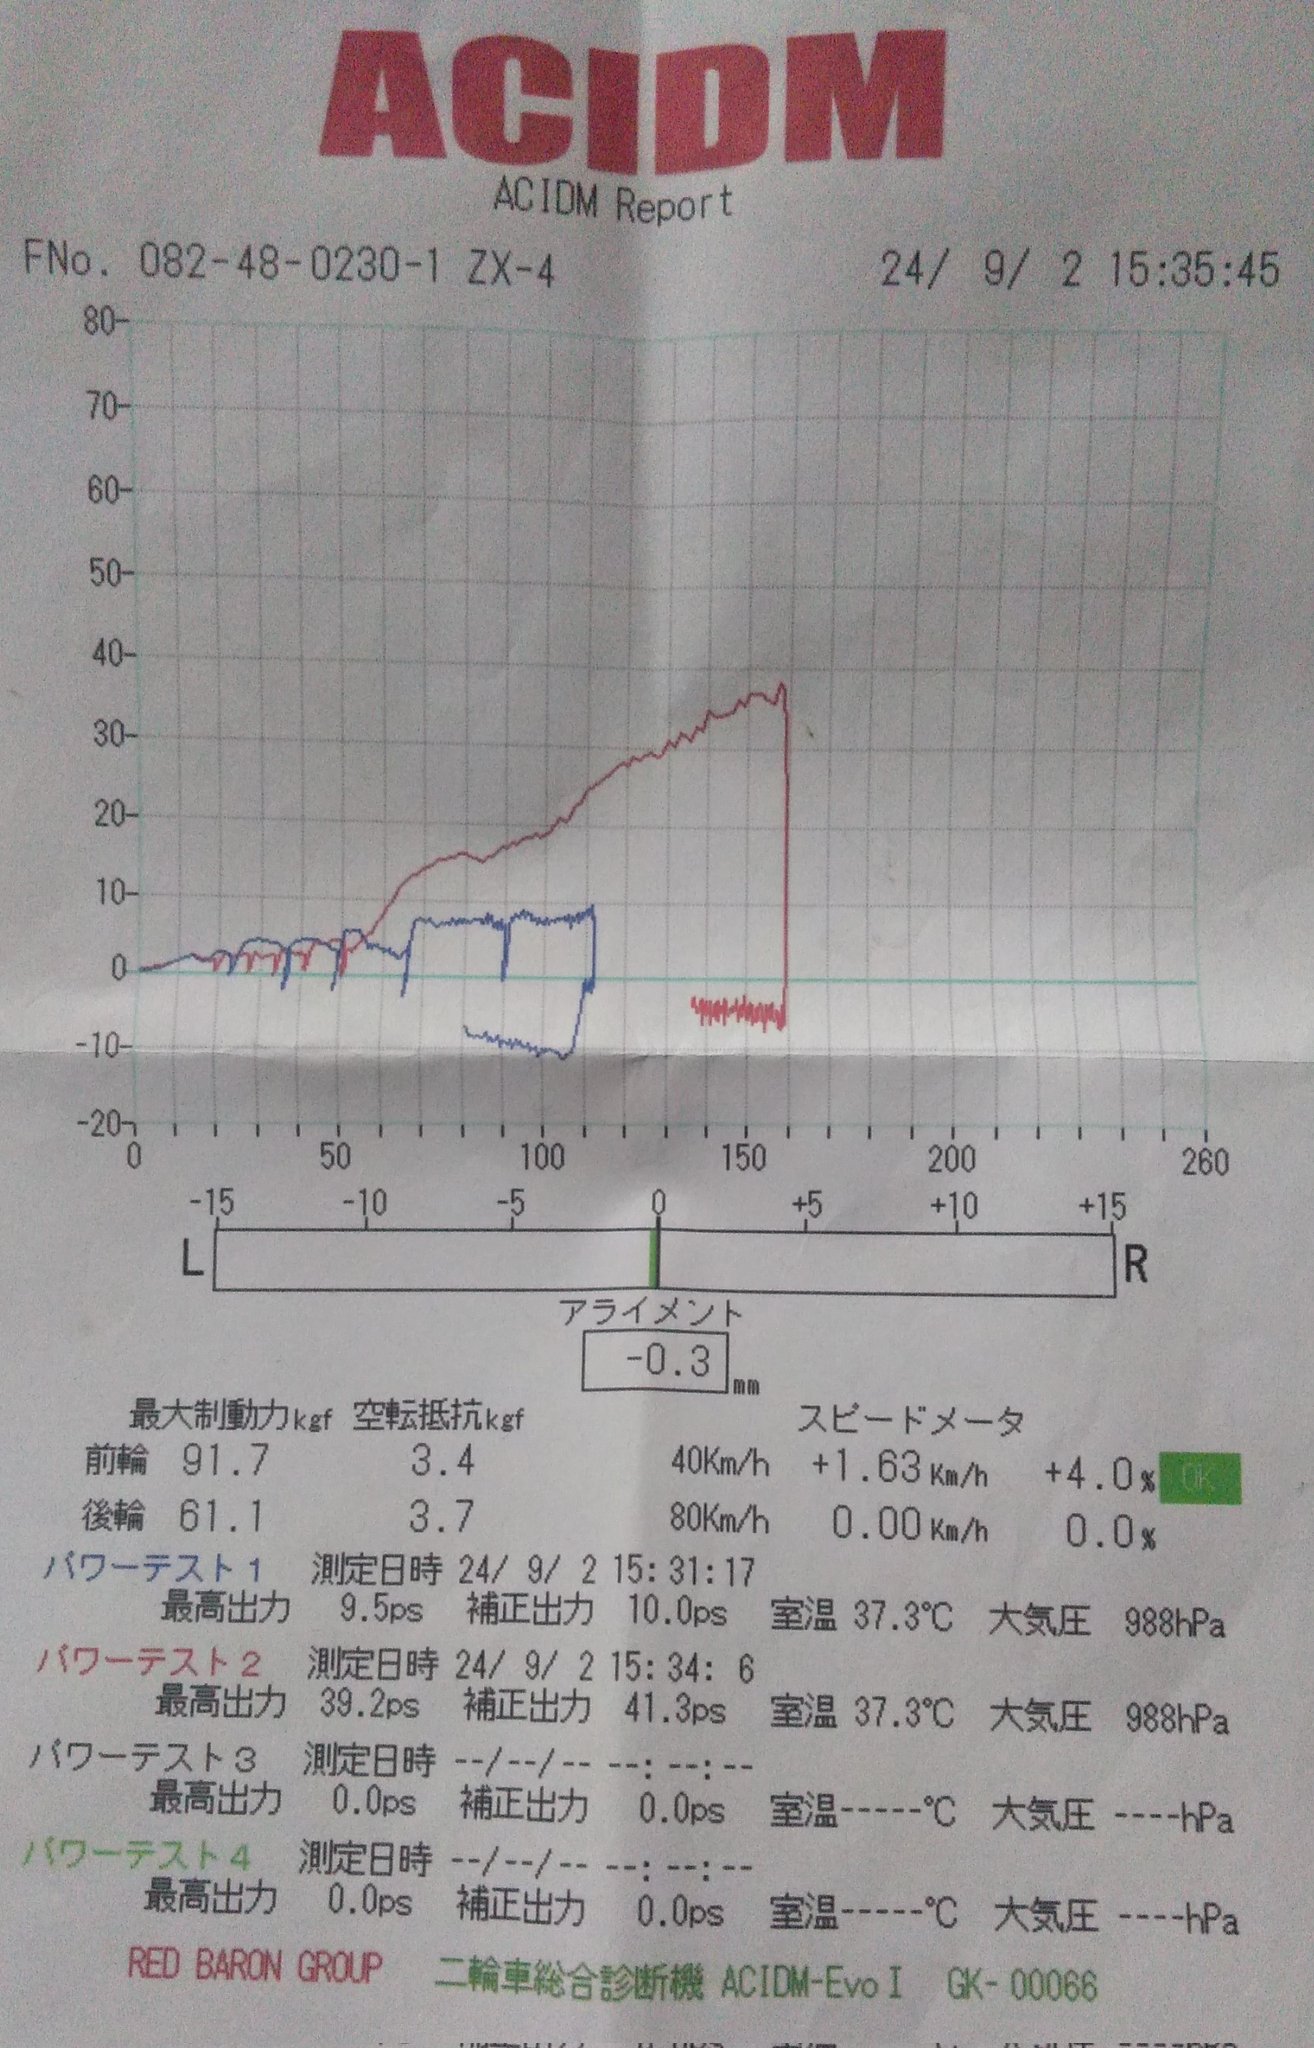 ACIDM
ACIDM Report
FNo. 082-48-0230-1 ZX-4 24/ 9/ 2 15:35:45
80
70
60
50
40
30
20
10
0
-10
-20
0 50 100 150 200 260
-15 -10 -5 0 +5 +10 +15
L R
アライメント
-0.3 mm
最大制動力kgf 空転抵抗kgf スピードメータ
前輪 91.7 3.4 40Km/h +1.63 Km/h +4.0% OK
後輪 61.1 3.7 80Km/h 0.00 Km/h 0.0%
パワーテスト1 測定日時 24/ 9/ 2 15:31:17
最高出力 9.5ps 補正出力 10.0ps 室温 37.3℃ 大気圧 988hPa
パワーテスト2 測定日時 24/ 9/ 2 15:34: 6
最高出力 39.2ps 補正出力 41.3ps 室温 37.3℃ 大気圧 988hPa
パワーテスト3 測定日時 --/--/-- --:--:--
最高出力 0.0ps 補正出力 0.0ps 室温-----℃ 大気圧 ----hPa
パワーテスト4 測定日時 --/--/-- --:--:--
最高出力 0.0ps 補正出力 0.0ps 室温-----℃ 大気圧 ----hPa
RED BARON GROUP 二輪車総合診断機 ACIDM-Evo I GK-00066